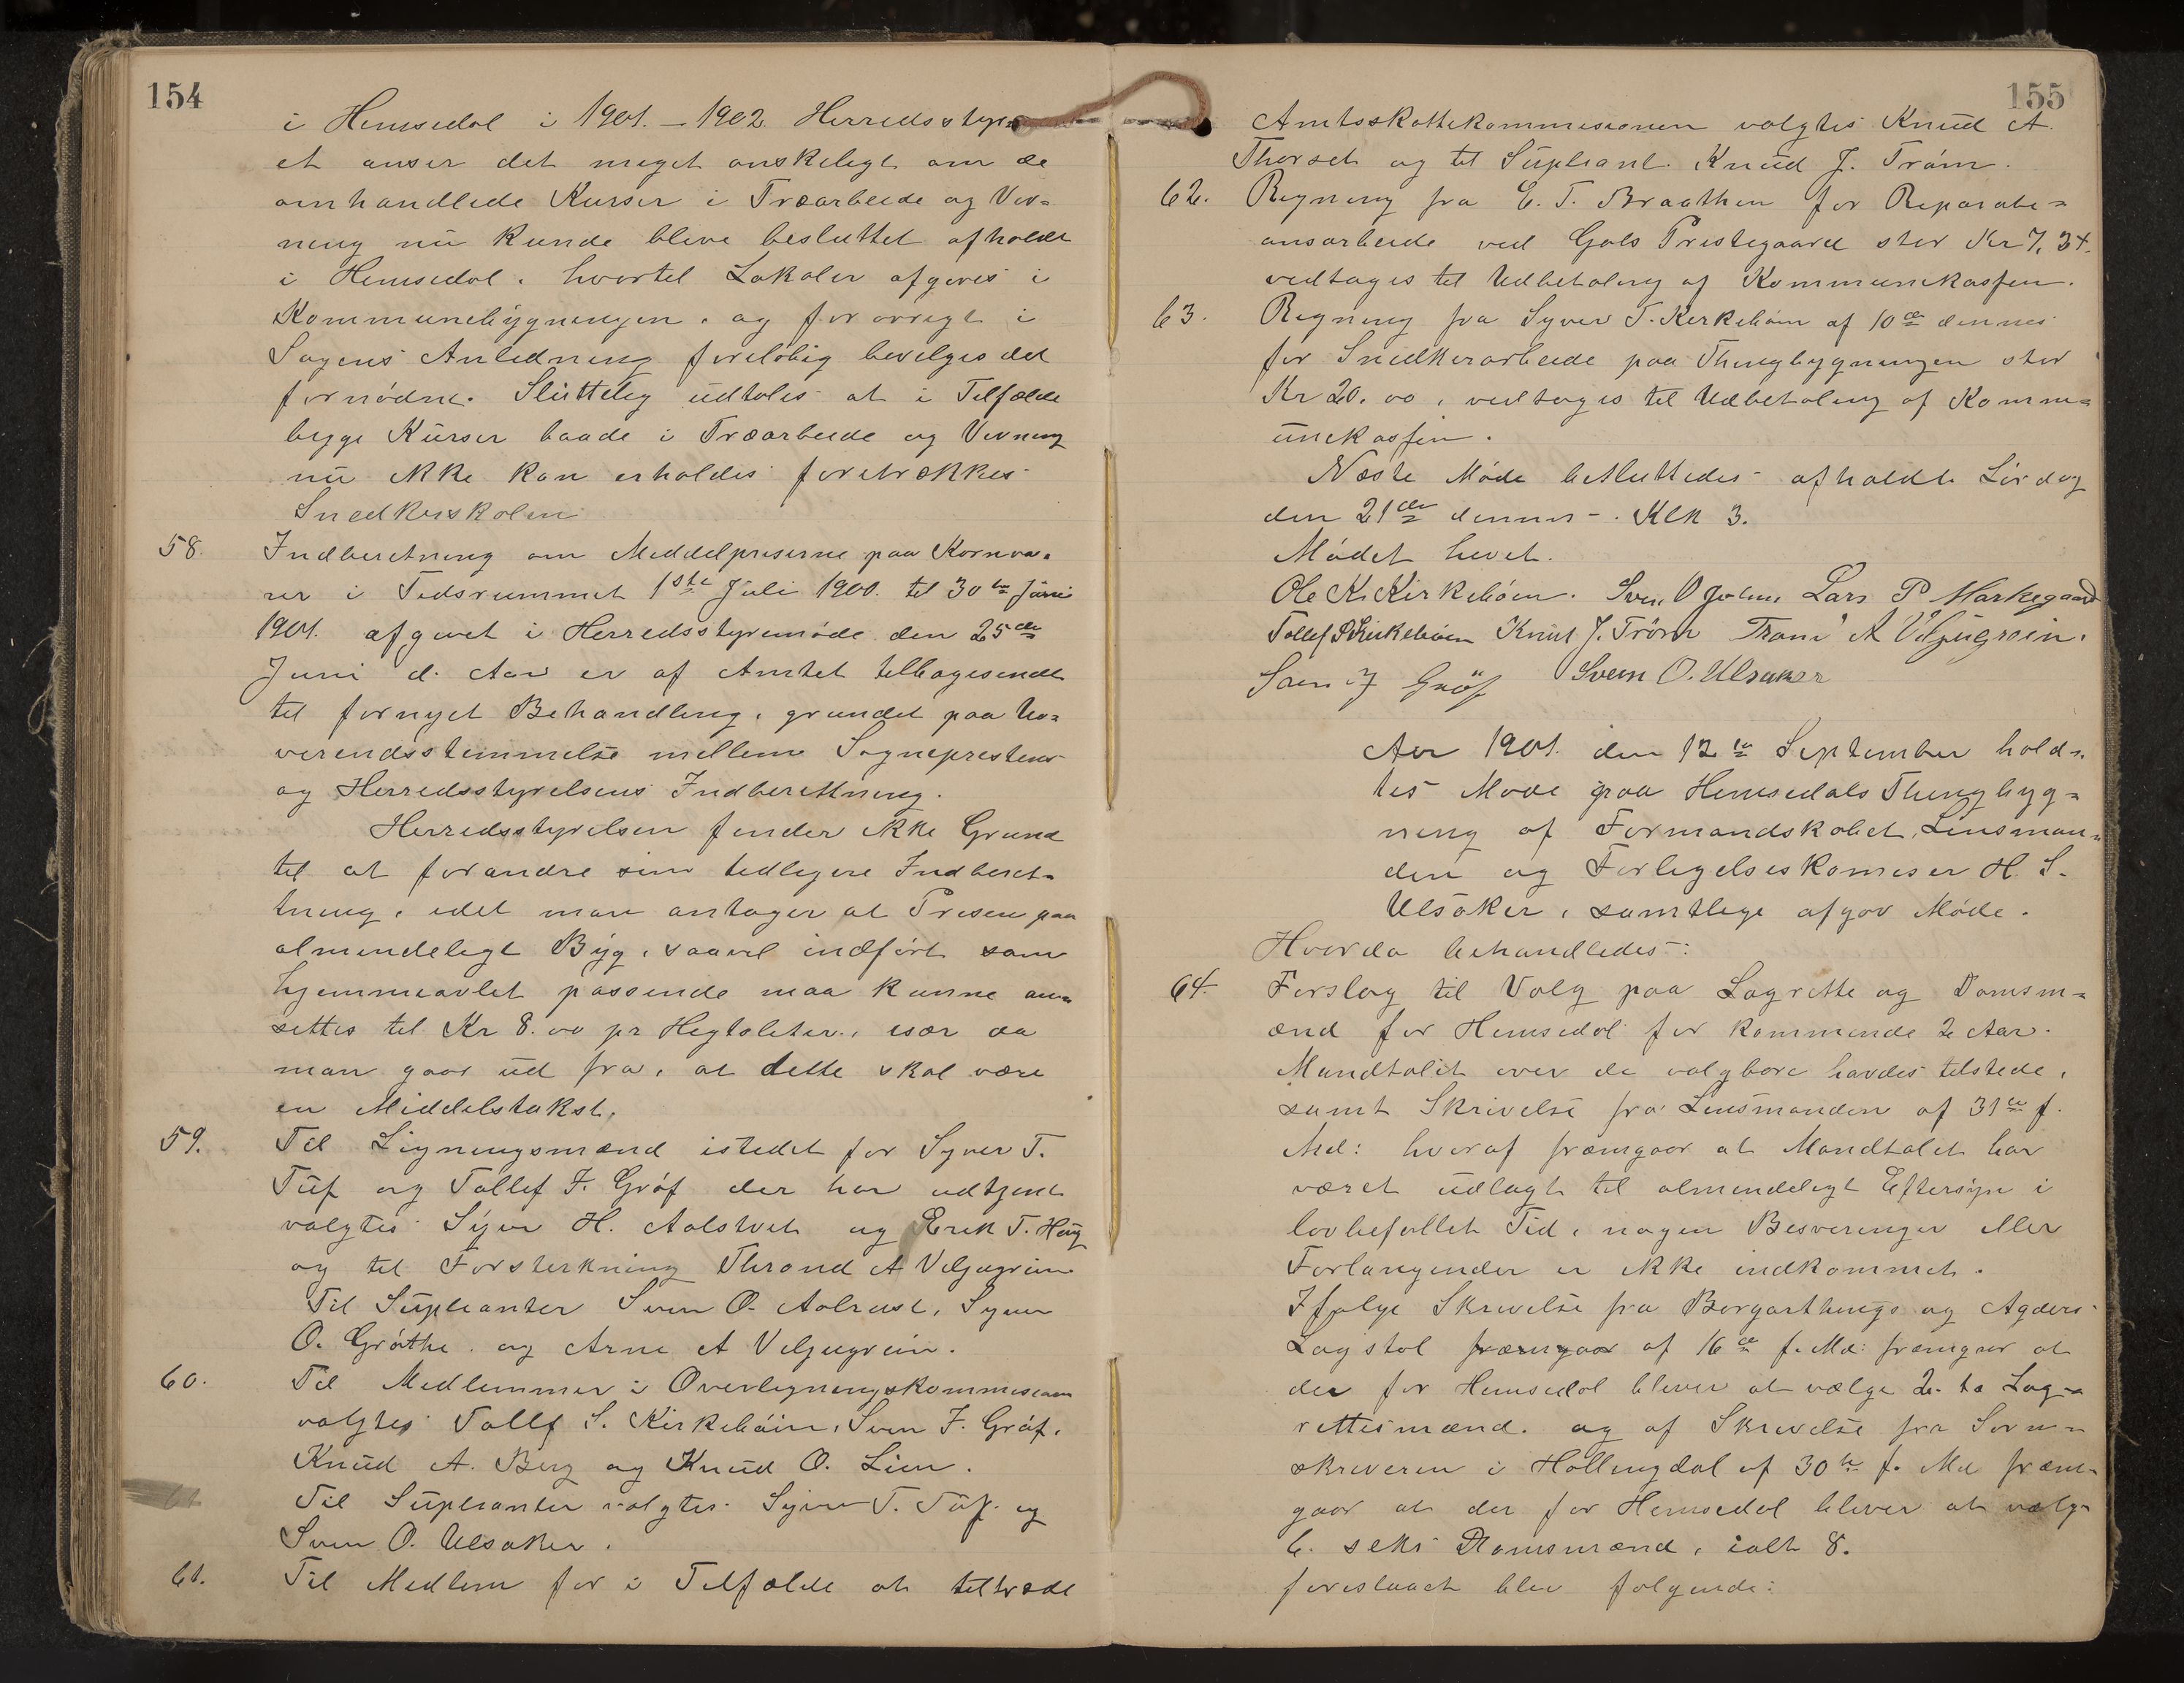 154
i Hemsedal i 1901. – 1902. Herredsstyr
et anser det meget ønskeligt om de
omhandlede Kurser i Træarbeide og Vev-
ning nu kunde blive besluttet afholdt
i Hemsedal. hvortil Lokaler afgives i
Kommunebygningen. og forøvrigt i
Sagens Anledning foreløbig bevilges det
fornødne. Sluttelig udtales at i Tilfælde
begge Kurser baade i Træarbeide og Vevning
nu ikke kan erholdes foretrækkes
Snedkerskolen
58. Indberetning om Middelpriserne paa Kornva-
rer i Tidsrummet 1ste Juli 1900. til 30te Juni
1901. afgivet i Herredsstyremøde den 25de
Juni d. Aar er af Amtet tilbagesendt
til fornyet Behandling, grundet paa Uo-
verendsstemmelse mellem Sogneprestens
og Herredsstyrelsens Indberettning.
Herredsstyrelsen finder ikke Grund
til at forandre sin tidligere Indberet-
tning, idet man antager at Prisen paa
almindeligt Byg, saavel indført som
hjemmeavlet passende maa kunne an-
settes til Kr 8.00 pr Hegtoliter., især da
man gaar ud fra, at dette skal være
en Middelstakst.
59. Til Ligningsmænd istedet for Syver T.
Tuf og Tollef J. Grøf der har udtjent
valgtes Syver H. Aalstvet og Erik T. Haug
og til Forsterkning Thrond A Viljugrein
Til Supleanter Sven O. Aalrust, Syver
O. Grøthe. og Arne A Viljugrein.
60. Til Medlemmer i Overligningskommissionen
valgtes Tollef S. Kirkebøin, Sven J. Grøf,
Knud A. Berg og Knud O. Lien.
Til Supleanter valgtes Syver T. Tuf og
Sven O. Ulsaker.
61. Til Medlem for i Tilfælde at tiltræde
155
Amtsskattekommisionen valgtes Knud A.
Thorset og til Supleant Knud J. Trøm.
62. Regning fra E. T. Braathen for Reparati-
onsarbeide ved Gols Prestegaard stor Kr 7,34.
vedtages til Udbetaling af Kommunekassen.
63. Regning fra Syver T. Kirkebøin af 10de dennes
for Snedkerarbeide paa Thingbygningen stor
Kr 20.00, vedtages til Udbetaling af Komm-
unekassen.
Næste Møde besluttedes afholdt Lørdag
den 21de dennes -. Klk 3.
Mødet hevet.
Ole K. Kirkebøen. Sven O Lars P Markegaard
Tollef S Kirkebøen Knut J. Trøm Trond A Viljugrein.
Sven J Grøf Svein O. Ulsaker
Aar 1901. den 12te September hold-
tes Møde paa Hemsedals Thingbyg-
ning af Formandskabet, Lensman-
den og Forligelseskomiser H. S.
Ulsaker, samtlige afgav Møde.
Hvorda behandledes:
64. Forslag til Valg paa Lagrette og Domsm-
ænd for Hemsedal for kommende 2 Aar.
Mandtalet over de valgbare havdes tilstede,
samt Skrivelse fra Lensmanden af 31te f.
Md: hvoraf fræmgaar at Mandtalet har
været udlagt til almindeligt Eftersyn i
lovbefallet Tid, nogen Besveringer eller
Forlangender er ikke indkommet.
Ifølge Skrivelse fra Borgarthings og Agders
Lagstol fræmgaar af 16de f. Md: fræmgaar at
der for Hemsedal bliver at vælge 2. to Lag-
rettesmænd. og af Skrivelse fra Soren-
skriveren i Hallingdal af 30te f. Md fræm-
gaar at der for Hemsedal bliver at vælge
6. seks Domsmænd, ialt 8.
foreslaaet blev følgende: